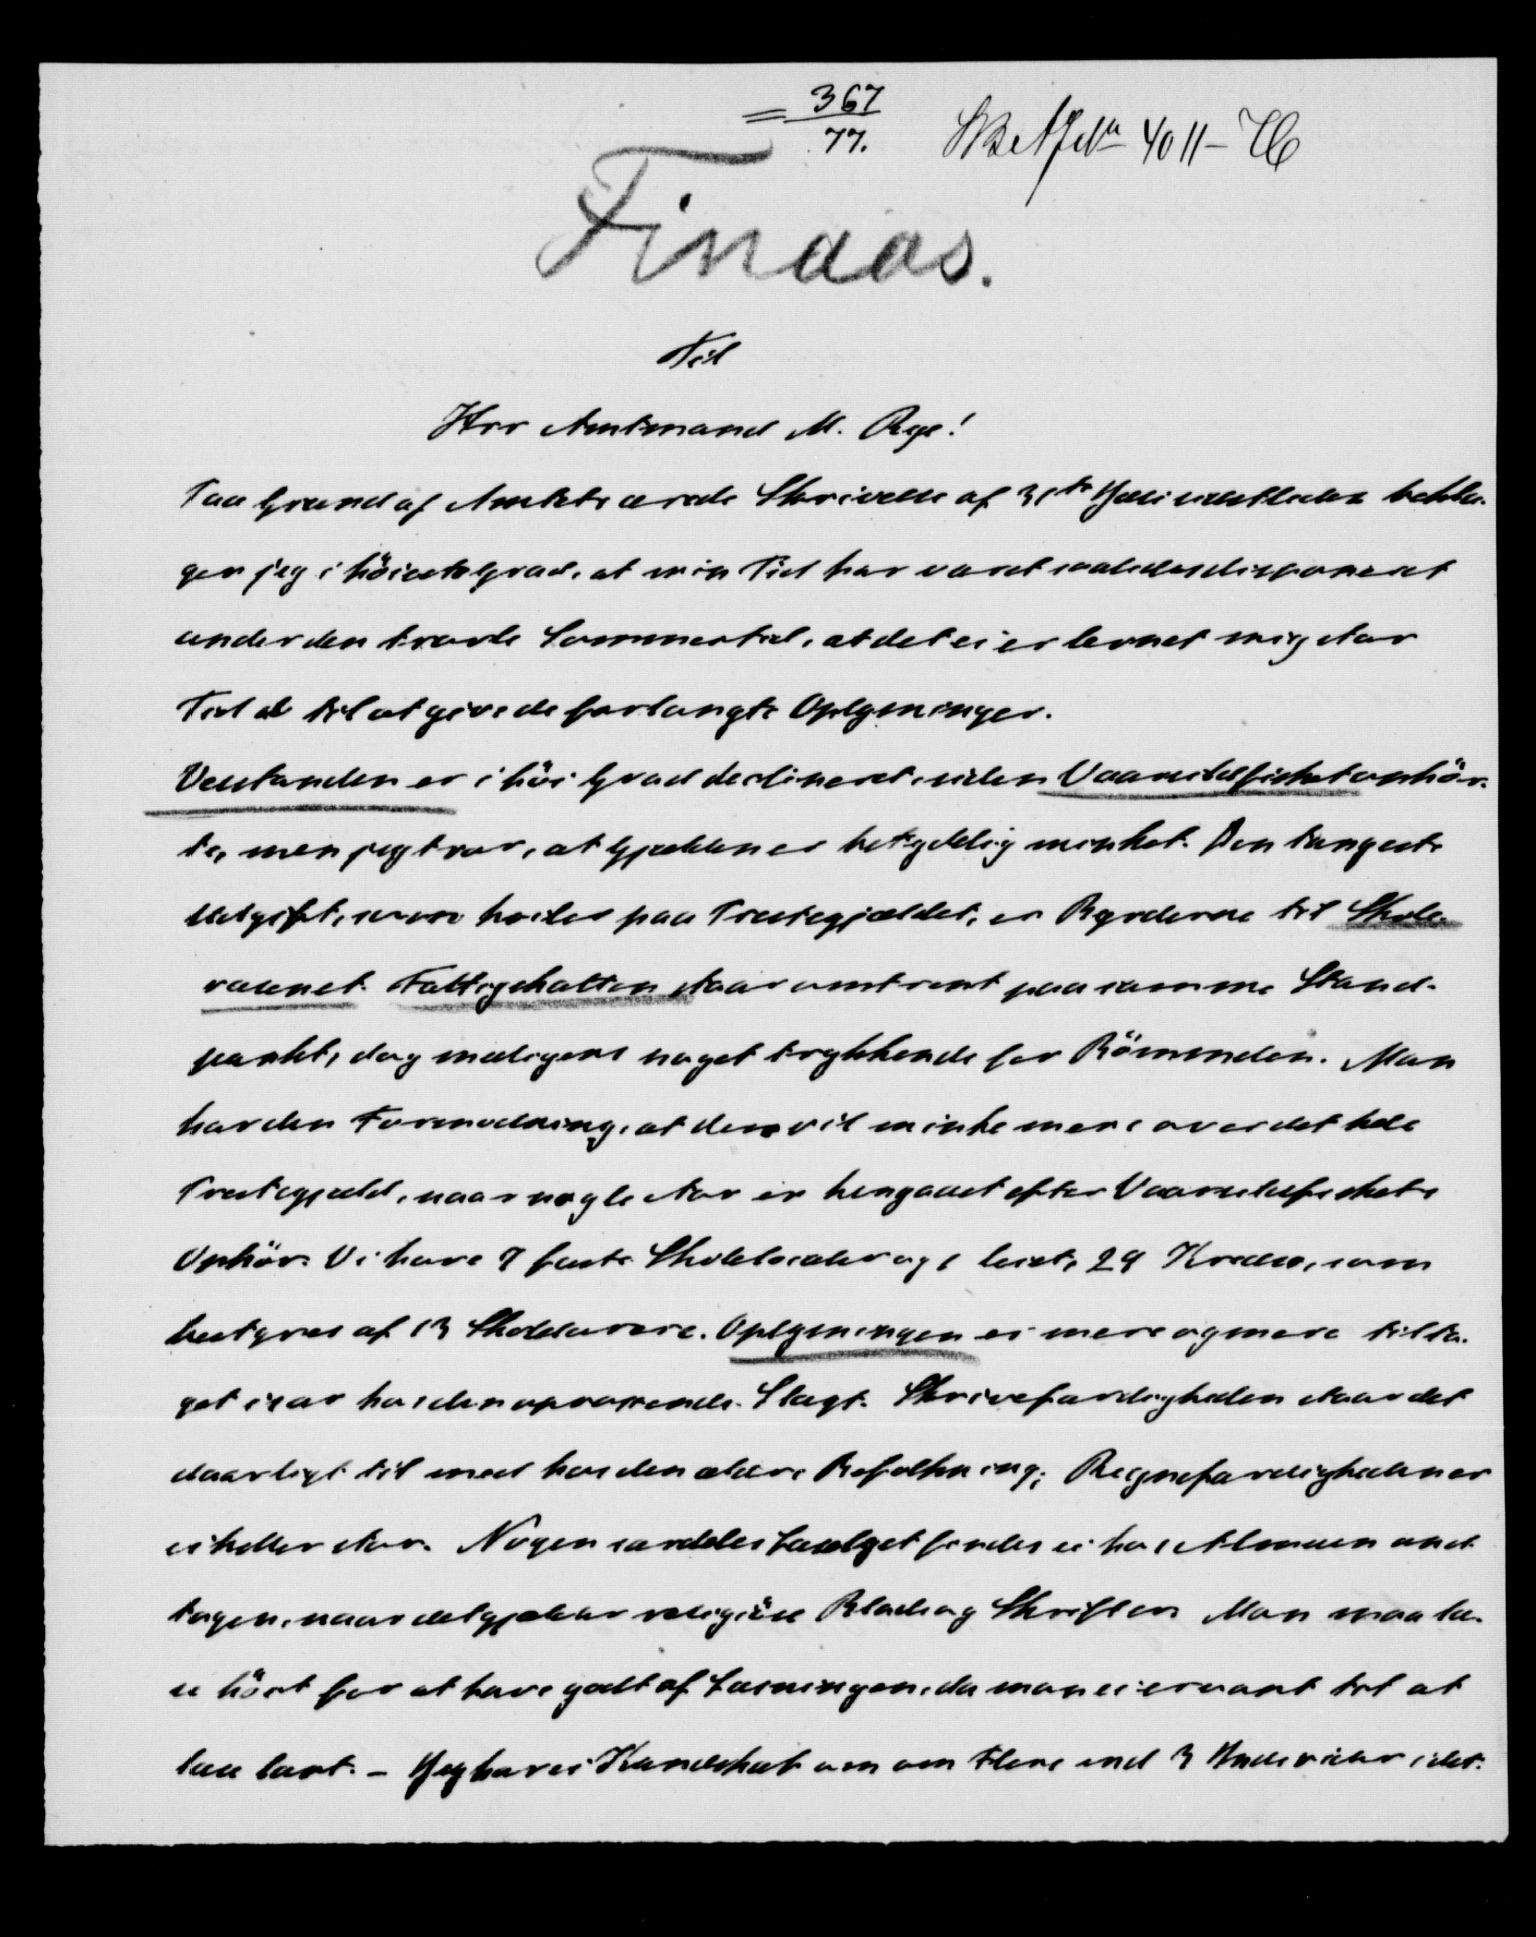 = 367
77.
4011-76
Finaas.
Til
Herr Amtmand M. Rye!
Paa Grund af Amtets ærede Skrivelse af 31te Juli sidstleden bekla-
ger jeg i höieste Grad, at min Tid har været saaledes disponeret
under den travle Sommertid, at det ei er levnet mig stor
Tid til at give de forlangte Oplysninger.
Velstanden er i höi Grad declineret, siden Vaarsildfisket ophör-
te, men jeg tror, at Gjælden er betydelig minket. Den tungeste
Udgift, som hviler paa Præstegjældet, er Byrderne til Skole-
væsenet. Fattigskatten staar omtrent paa samme Stand-
punkt, dog maaligens noget trykkende for Bömmelen. Man
har den Formodning, at den vil minke mere over det hele
Præstegjæld, naar nogle Aar er hengaaet efter Vaarsildfiskets
Ophör. Vi have 7 faste Skolelocaler og 1 leiet, 29 Kredse, som
bestyres af 13 Skolelærere. Oplysningen er mere og mere tilta-
get især hos den opvoxende Slægt. Skrivefærdigheden staar det
daarligt til med hos den ældre Befolkning; Regnefærdigheden er
ei heller stor. Nogen særdeles Læselyst findes ei hos Almuen und-
tagen, naar det gjælder religiöse Blade og Skrifter. Man maa læ-
se höit for at have godt af Læsningen, da man ei er vant til at
læse lavt. – Jeg har ei Kundskab om om Flere end 3 Individer i det